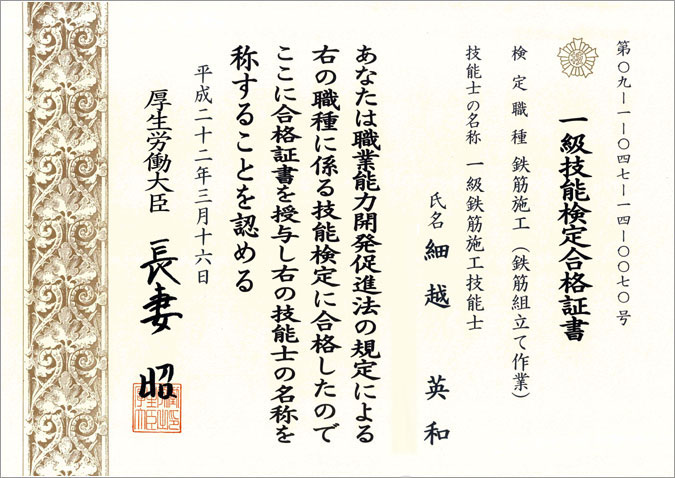 第〇九―一―〇四七―一四―〇〇七〇号
一級技能検定合格証書
検定職種 鉄筋施工（鉄筋組立て作業）
技能士の名称 一級鉄筋施工技能士
氏名 細越 英和
あなたは職業能力開発促進法の規定による
右の職種に係る技能検定に合格したので
ここに合格証書を授与し右の技能士の名称を
称することを認める
平成二十二年三月十六日
厚生労働大臣 長妻 昭